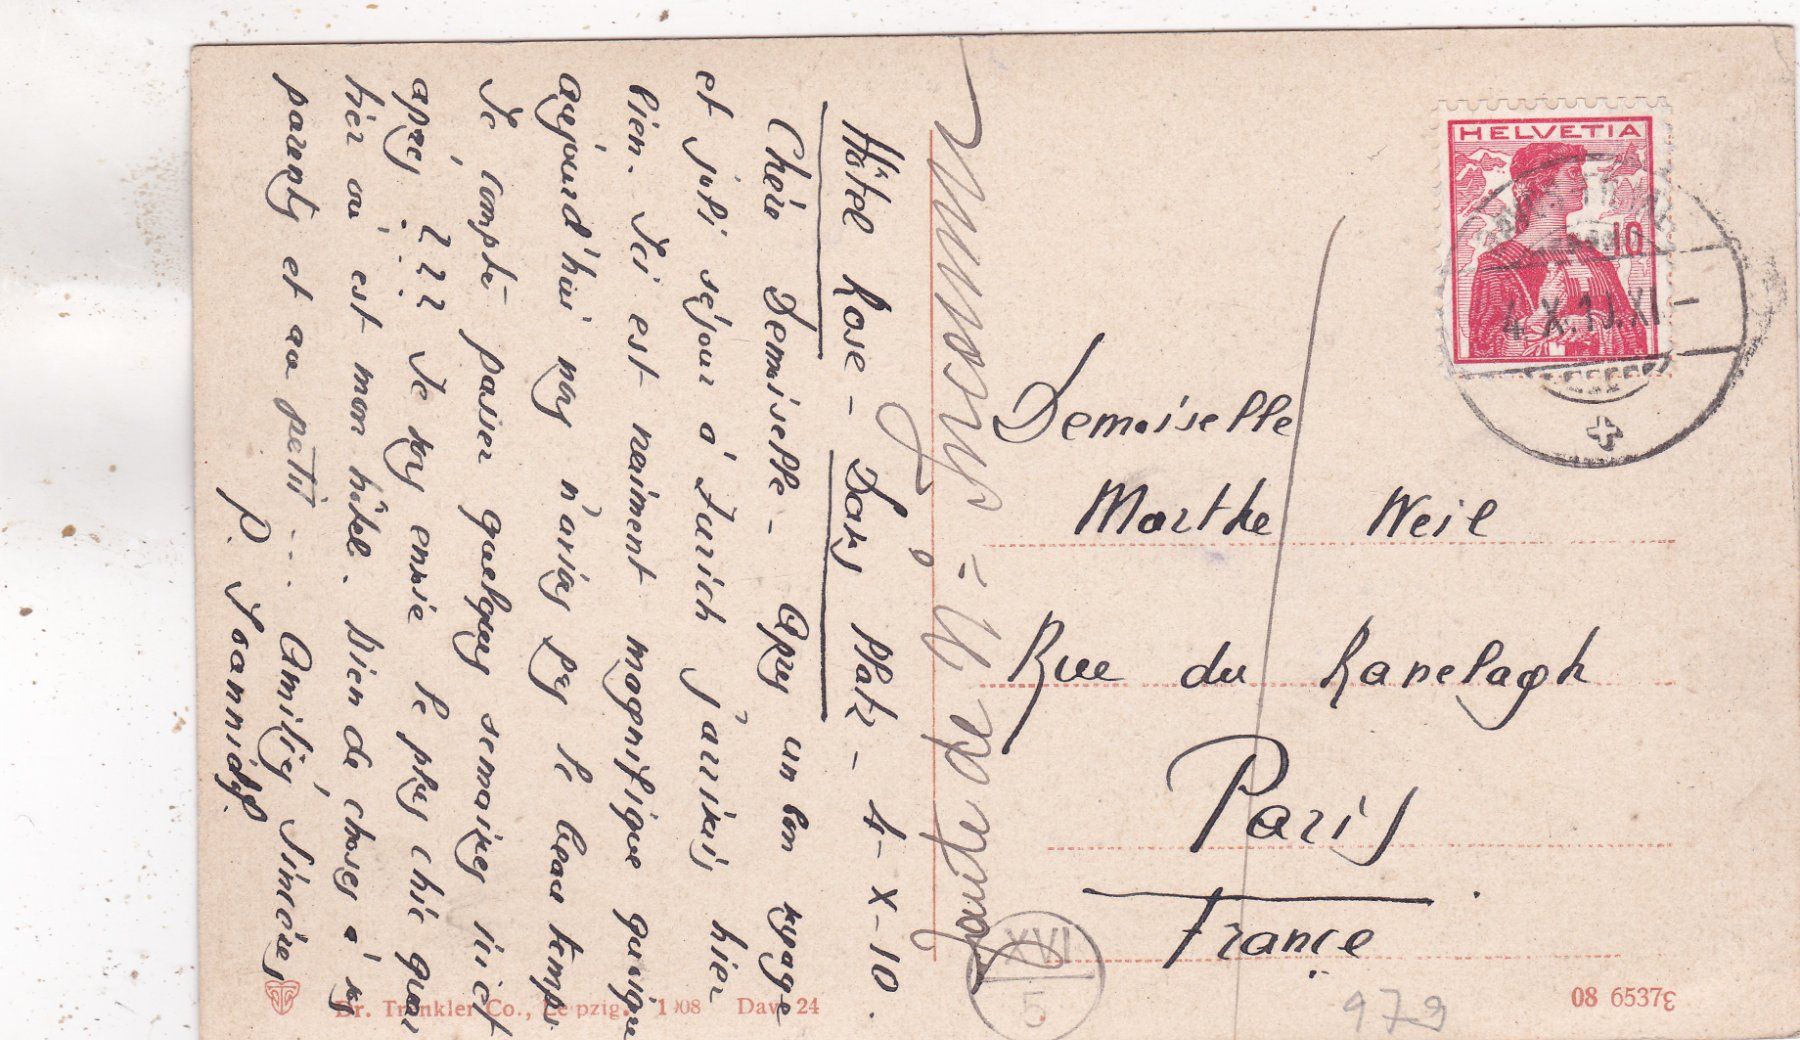 Hôtel Rose - Davos Platz - 4-X-10.
Chère Demoiselle - Après un bon voyage
et joli séjour à Zurich j'arrivais hier
bien. Ici est vraiment magnifique quoique
aujourd'hui nous n'avions pas le beau temps.
Je compte passer quelques semaines ici et
après ? ? ? Je vous envoie le plus chic
hier où est mon hôtel. Bien de choses à vos
parents et au petit ... Amitiés Sincères
P.
Demoiselle
Marthe Weil
Rue du Ranelagh
Paris
France
HELVETIA
10
4.X.10.XI-
XVI
5
979
Dr. Trenkler Co., Leipzig. 1908 Dav. 24
08 6537